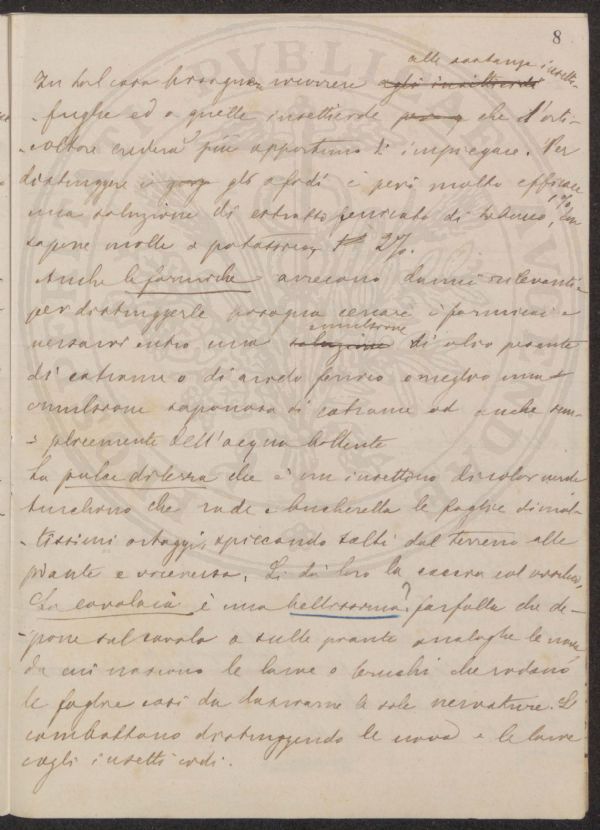 8
alle sostanze insetti-
In tal caso bisognerà ricorrere agli insetticidi
-fughe ed a quelle insetticide che l'orti-
-coltore crederà più opportuno d'impiegare. Per
distruggere gli afidi è però molto efficace
una soluzione di estratto fenicato di tabacco, 1%, con
sapone molle a potassico, 2%.
Anche le formiche arrecano danni rilevanti e
per distruggerle bisogna cercare i formicai e
emulsione
versarvi entro una soluzione di olio pesante
di catrame o di acido fenico o meglio una
emulsione saponosa di catrame od anche sem-
-plicemente dell'acqua bollente
La pulce di terra che è un insettino di color verde
turchino che rode e bucherella le foglie di mol-
-tissimi ortaggi, spiccando salti dal terreno alle
piante e viceversa. Si dà loro la caccia col vischio.
La cavolaia è una bellissima? farfalla che de-
-pone sul cavolo o sulle piante analoghe le uova
da cui nascono le larve o bruchi che rodono
le foglie così da lasciarne le sole nervature. Si
combattono distruggendo le uova e le larve
cogli insetticidi.